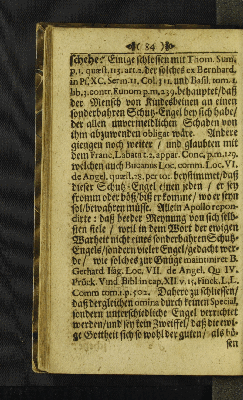 ( 84 )
schehe: Einige schlessen mit Thom. Sum.
p. 1. quæst. 113. art. 2. der solches ex Bernhard.
in Ps. XC. Serm. 11. Col. 311. und Basil. tom. 1.
lib. 3. contr. Eunom p. m. 239. behauptet / daß
der Mensch von Kindesbeinen an einen
sonderbahren Schutz-Engel bey sich habe /
der allen unvermeidlichen Schaden von
ihm abzuwenden obligat wäre. Andere
giengen noch weiter / und glaubten mit
dem Franc. Labata t. 2. appar. Conc. p. m. 129.
welchen auch Bucanus Loc. comm. Loc. VI.
de Angel. quæst. 28. per tot: bestimmet / daß
dieser Schutz-Engel einen jeden / er sey
fromm oder böß / biß er komme / wo er seyn
sol / bewahren müsse. Allein Apollo repon-
dirte: daß beeder Meynung von sich selb-
sten fiele / weil in dem Wort der ewigen
Warheit nicht eines sonderbahren Schutz-
Engels / sondern vieler Engel / gedacht wer-
de / wie solches zur Gnüge mainteniret B.
Gerhard Iag. Loc. VII. de Angel. Qu IV.
Pröck. Vind. Bibl in cap. XII. v. 15. Finck. L. L.
Comm tom. 1. p. 502. Dahero zu schliessen /
daß dergleichen omina durch keinen Special,
sondern unterschiedliche Engel verrichtet
werden / und sey kein Zweiffel / daß die ewi-
ge Gottheit sich so wohl der guten / als bö-
sen